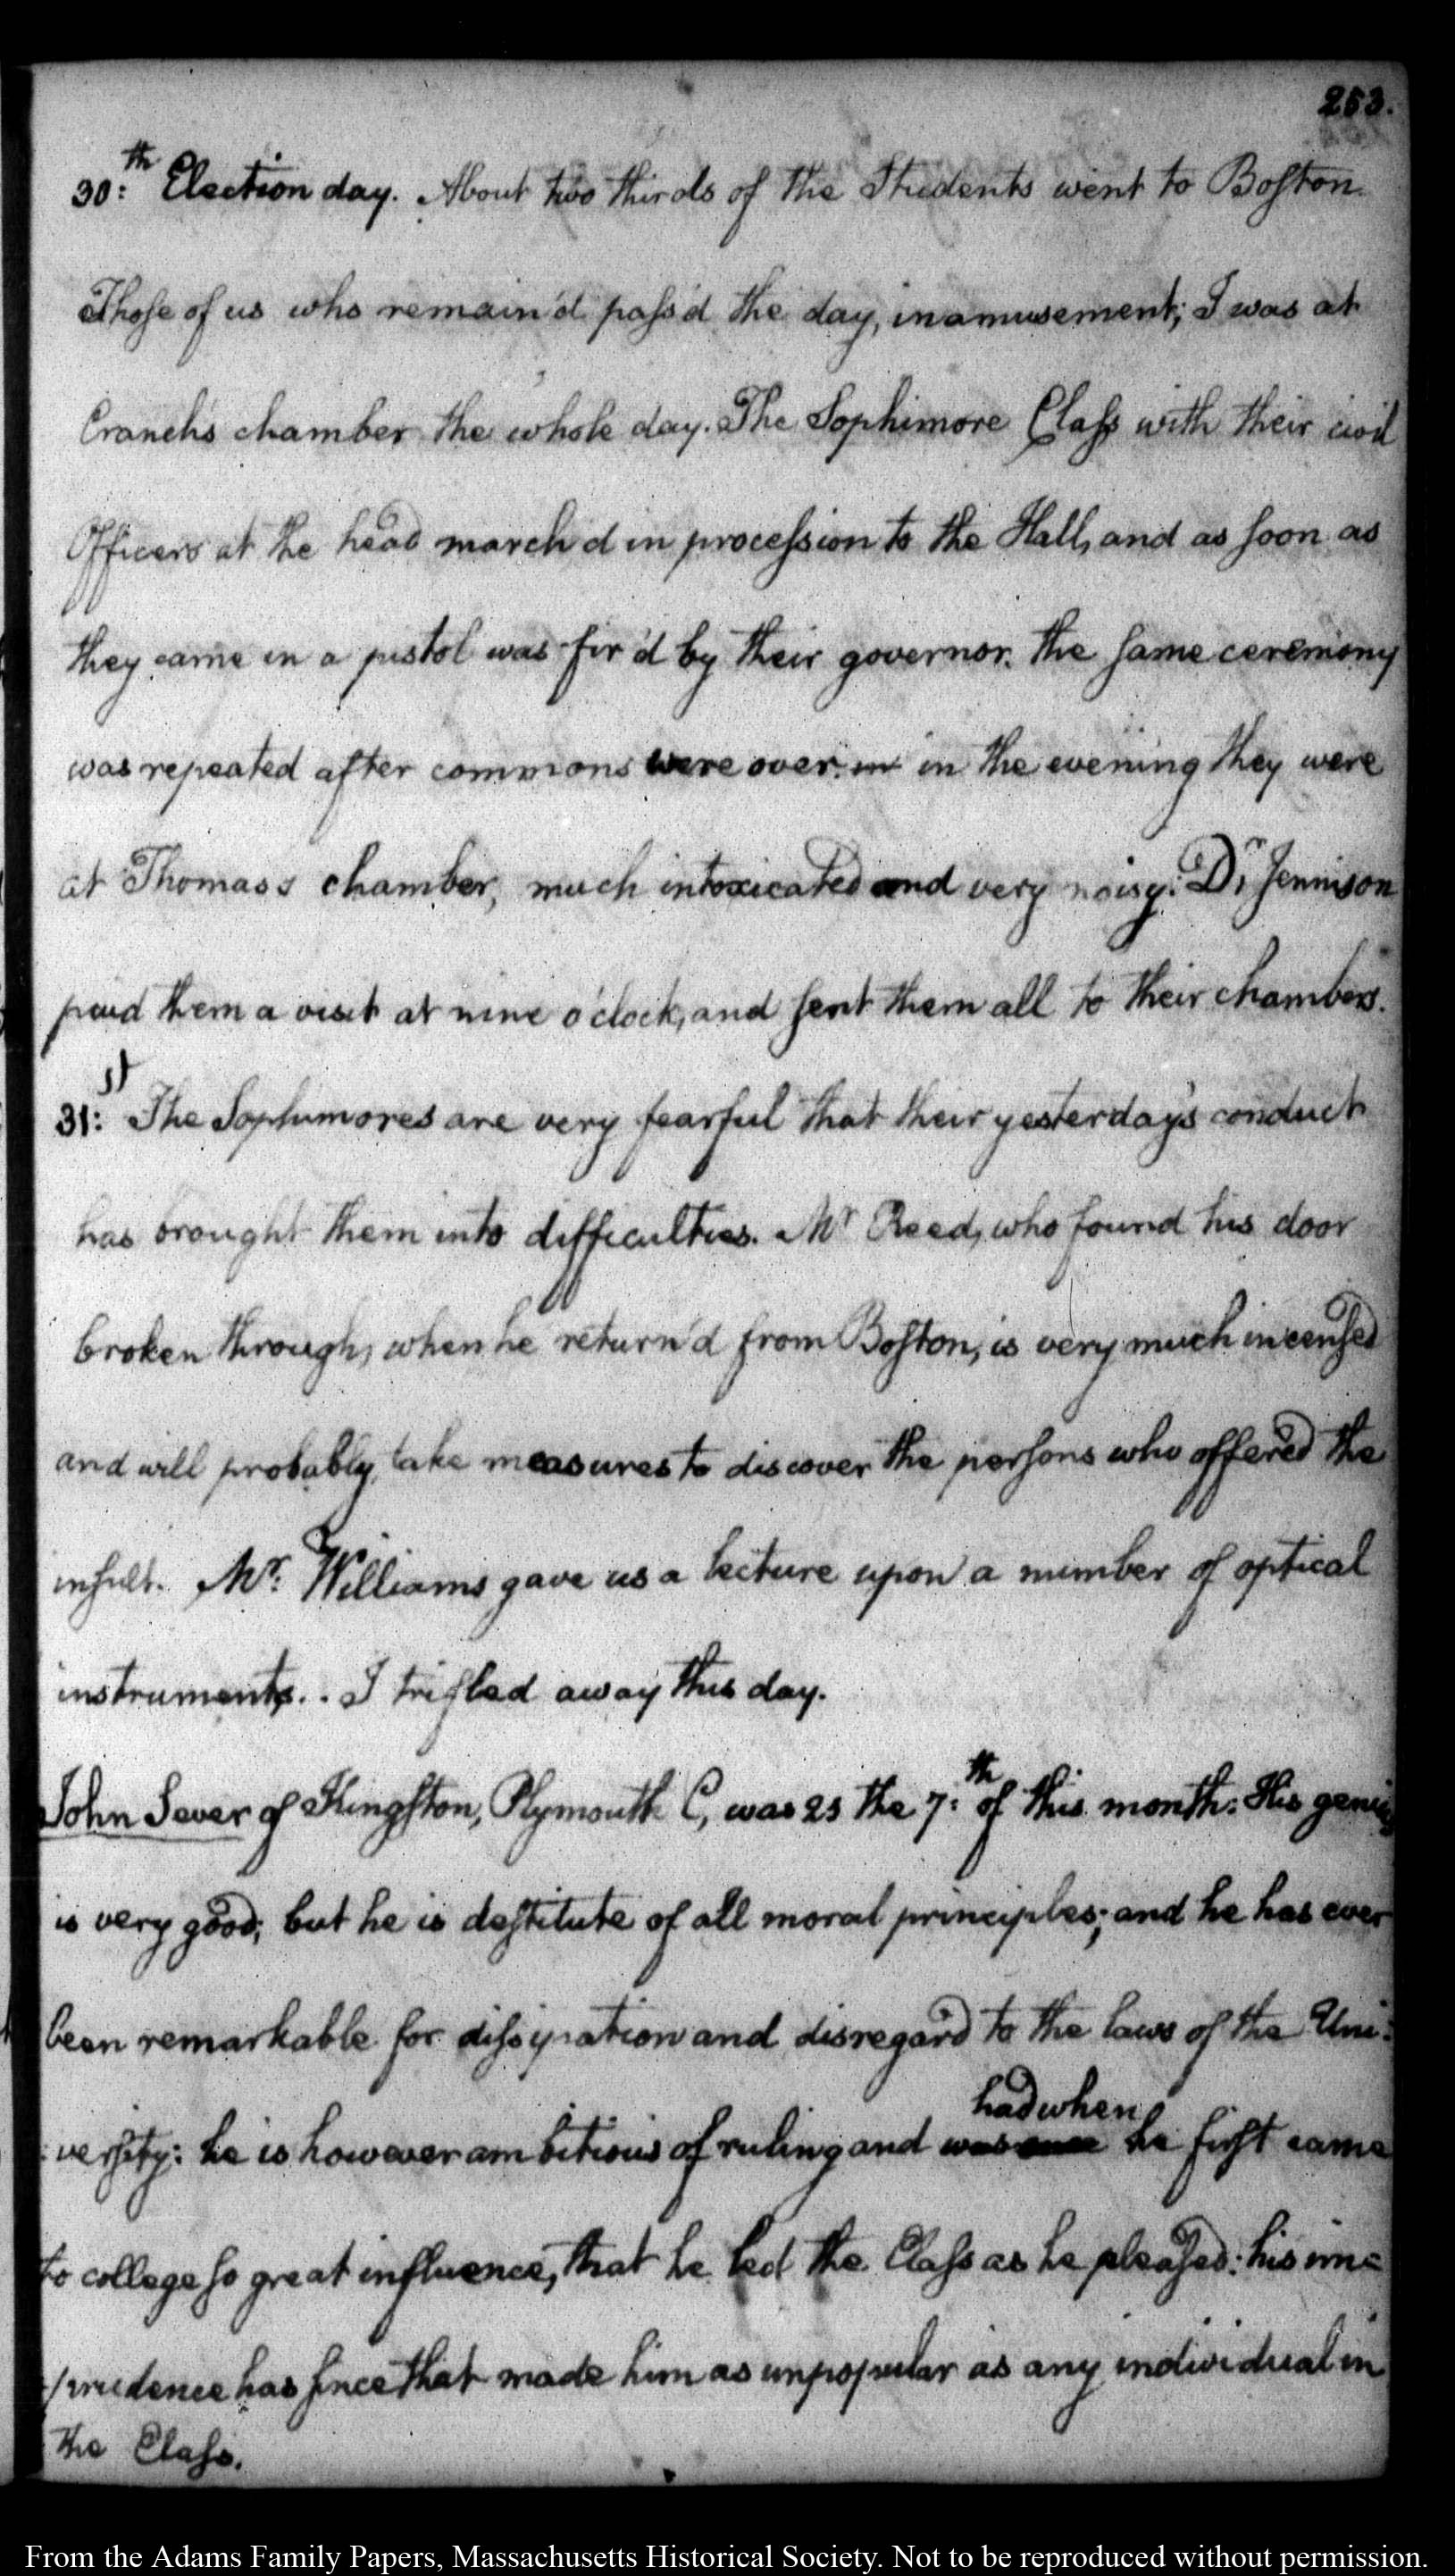 253.
30:th Election day. About two thirds of the Students went to Boston.
Those of us who remain'd pass'd the day, in amusement; I was at
Cranch's chamber the whole day. The Sophimore Class with their civil
Officers at the head march'd in procession to the Hall, and as soon as
they came in a pistol was fir'd by their governor. the same ceremony
was repeated after commons were over. in in the evening they were
at Thomas's chamber, much intoxicated and very noisy: Dr. Jennison
paid them a visit at nine o'clock, and sent them all to their chambers.
31:st The Sophimores are very fearful that their yesterday's conduct
has brought them into difficulties. Mr Reed, who found his door
broken through, when he return'd from Boston, is very much incensed
and will probably, take measures to discover the persons who offered the
insult. Mr. Williams gave us a lecture upon a number of optical
instruments.. I trifled away this day.
John Sever of Kingston, Plymouth C, was 23 the 7:th of this month: His genius
is very good; but he is destitute of all moral principles; and he has ever
been remarkable for dissipation and disregard to the laws of the Uni:
:versity: he is however ambitious of ruling and was once had when he first came
to college so great influence, that he led the Class as he pleased: his im=
prudence has since that made him as unpopular as any individual in
the Class.
From the Adams Family Papers, Massachusetts Historical Society. Not to be reproduced without permission.